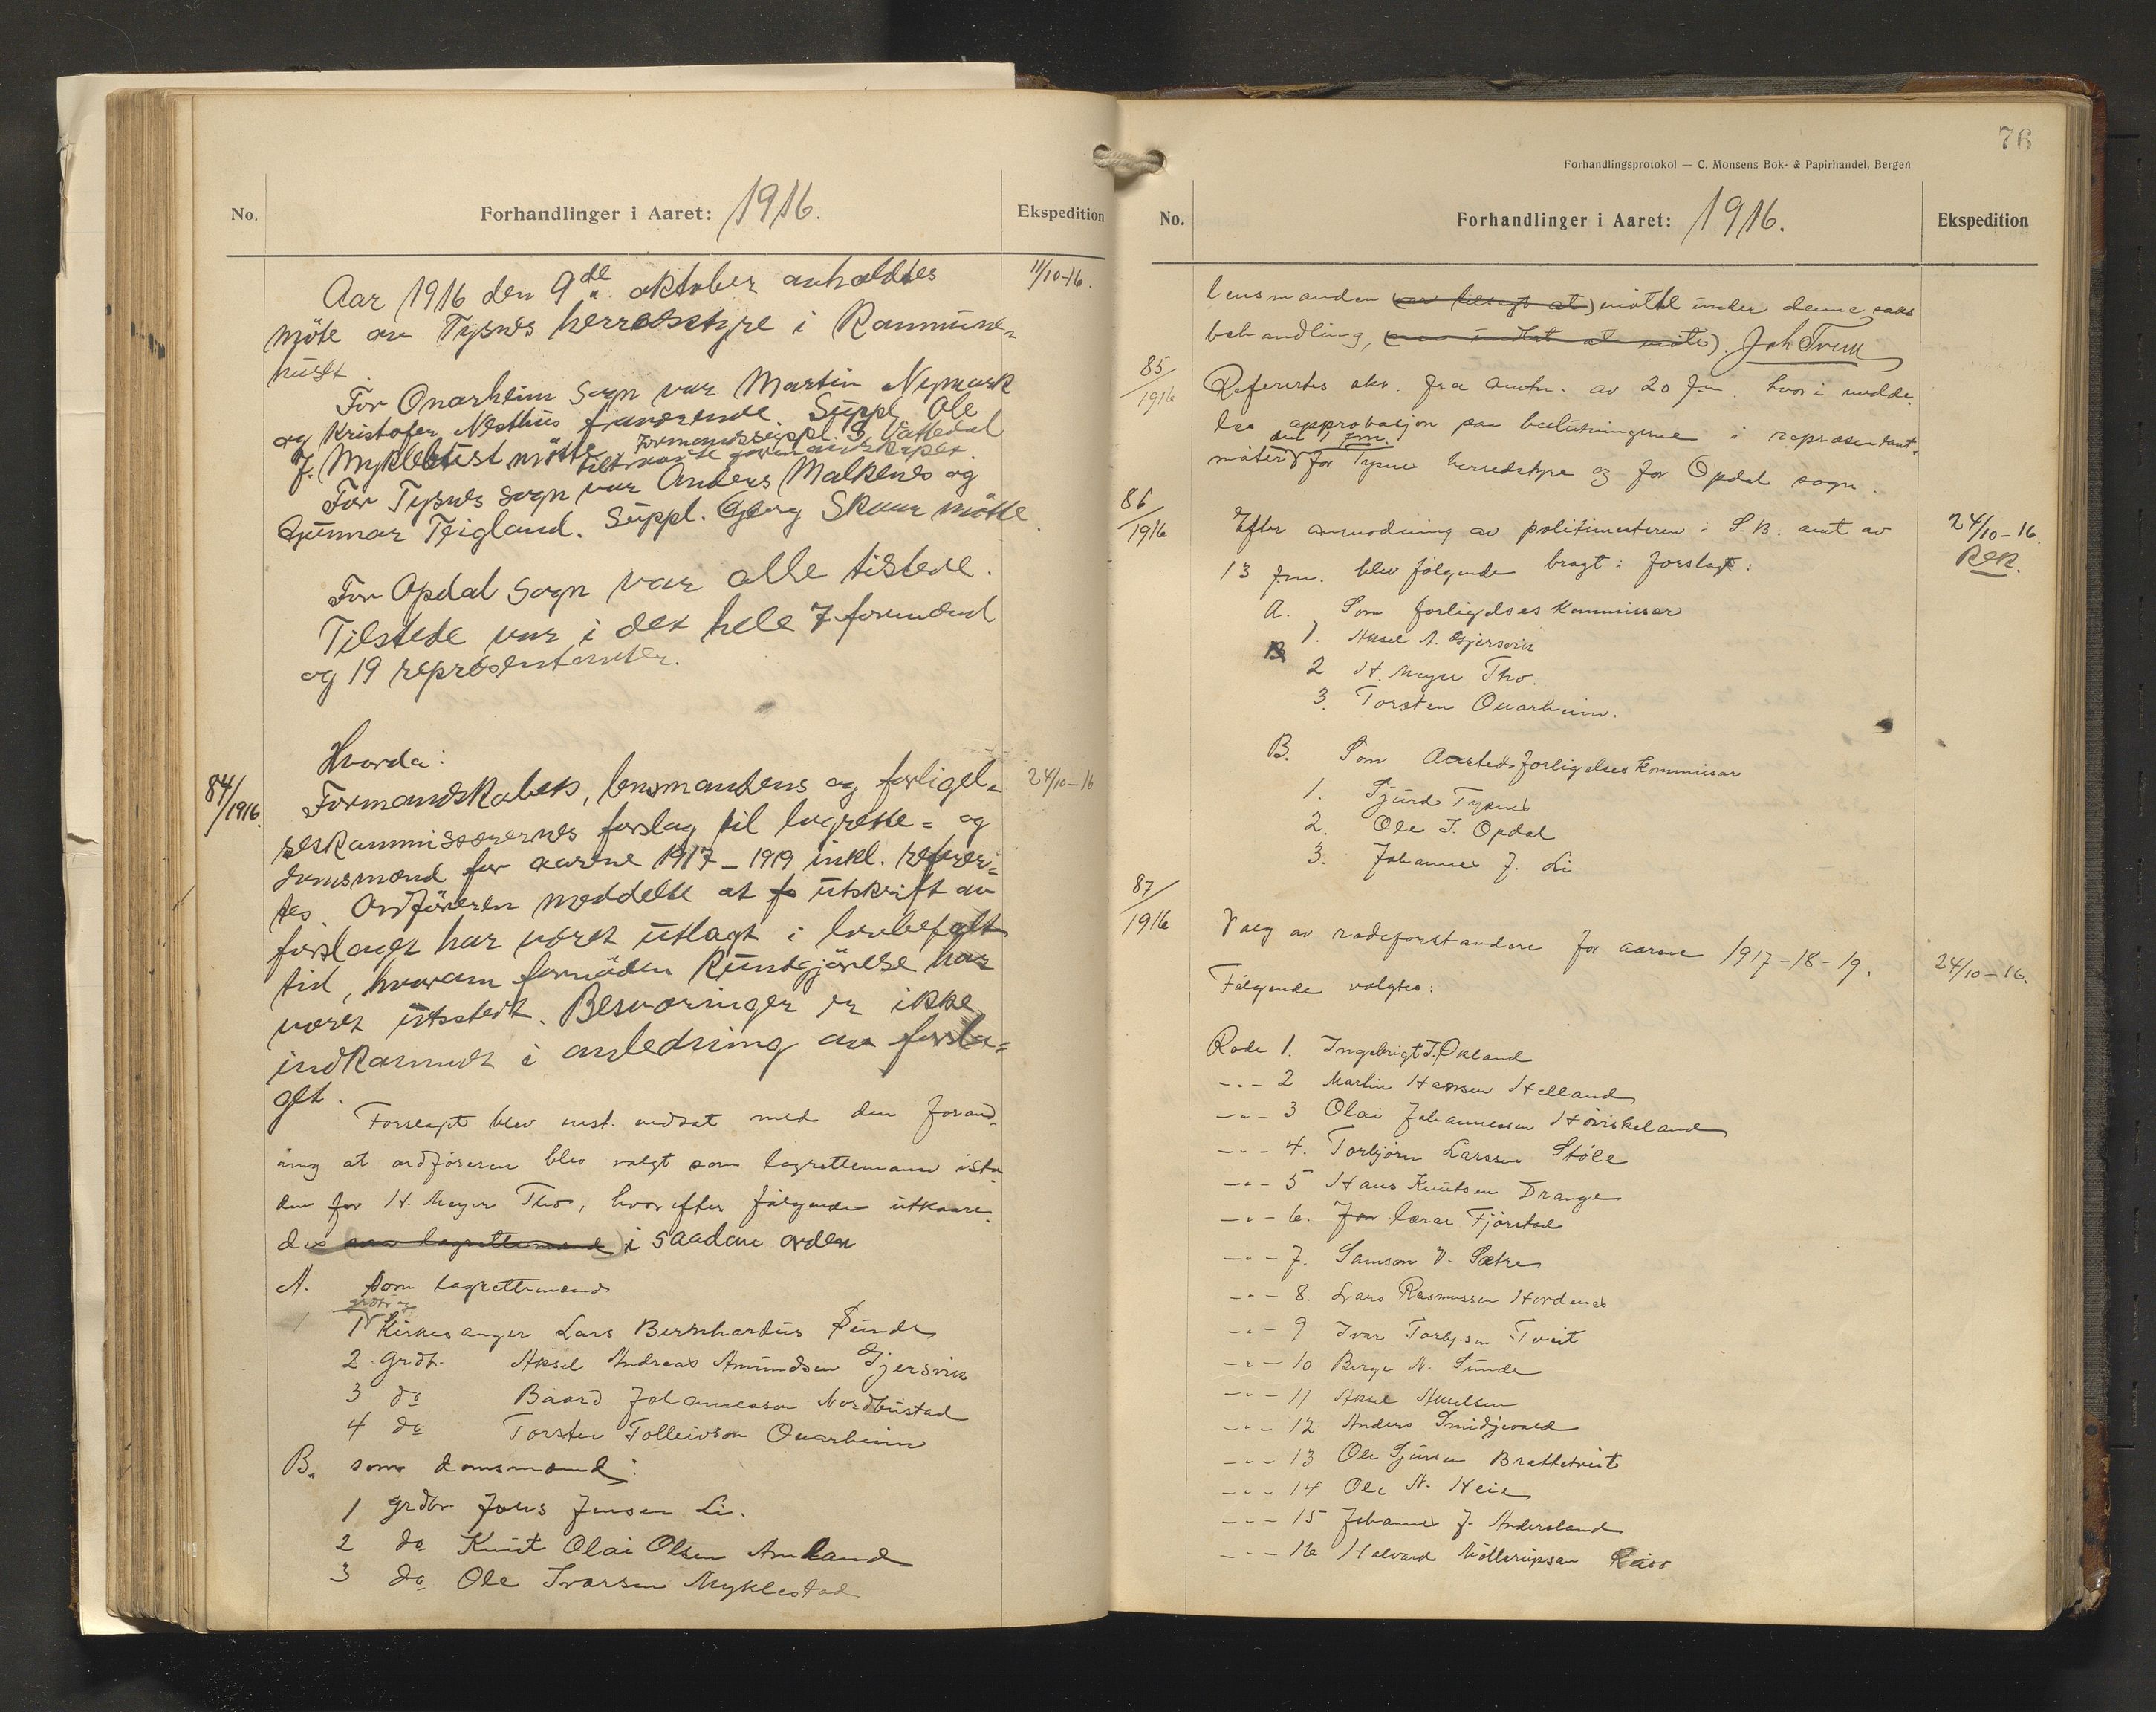 No.
Forhandlinger i Aaret: 1916.
Ekspedition
Aar 1916 den 9de oktober avholdtes
11/10-16.
möte av Tysnes herredsstyre i Kommune-
huset.
For Onarheim Sogn var Martin Nymark
og Kristofer Nesthus fraværende. Suppl. Ole
J. Myklebust mötte. Formandssuppl. S. Vattedal
tiltraadte formandskapet.
For Tysnes Sogn var Anders Malkenes og
Gunnar Teigland. Suppl. Georg Skaar mötte.
For Opdal Sogn var alle tilstede.
Tilstede var i det hele 7 formænd
og 19 repræsentanter.
Hvorda:
84/1916.
Formandskabets, lensmandens og forligel-
24/10-16
seskommissærernes forslag til lagrette- og
domsmænd for aarene 1917-1919 inkl. referer-
tes. Ordföreren meddelte at utskrift av
forslaget har været utlagt i lovbefalt
tid, hvorom fornöden kundgjörelse har
været utstedt. Besværinger er ikke
indkommet i anledning av forsla-
get.
Forslaget blev enst. vedtat med den forand-
ring at ordföreren blev valgt som lagrettemand iste-
den for H. Meyer Tho, hvorefter fölgende utkaare-
des som lagrettemænd i saadan orden
A. Som lagrettemænd
grdbr. og
1 Kirkesanger Lars Bernhardus Sunde
2. Grdbr. Aksel Andreas Amundsen Gjersvik
3 do Baard Johannesson Nordbustad
4 do Torsten Tolleivson Onarheim
B. som domsmænd:
1 grdbr. Jens Jensen Li.
2 do Knut Olai Olsen Amland
3 do Ole Ivarsen Myklestad
76
Forhandlingsprotokol — C. Monsens Bok- & Papirhandel, Bergen
No.
Forhandlinger i Aaret: 1916.
Ekspedition
lensmanden (var tilsagt at) mötte under denne saks
behandling, (var indbudt at möte).
85/1916
Refertes skr. fra amtm. av 20 f.m. hvori medde-
les approbasjon paa beslutningerne i repræsentant-
den 1 f.m.
möter for Tysnes herredstyre og for Opdal sogn.
86/1916
Efter anmodning av politimesteren i S. B. amt av
24/10-16.
13 f.m. blev fölgende bragt i forslag:
Rek.
A. Som forligelseskommissær
1. Aksel A. Gjersvik
2 H. Meyer Tho.
3. Torsten Onarheim.
B. Som Aastedsforligelseskommissær
1. Sjurd Tysnes
2. Ole J. Opdal
3. Johannes J. Li
87/1916
Valg av rodeforstandere for aarene 1917-18-19.
24/10-16.
Fölgende valgtes:
Rode 1. Ingebrigt J. Økland
-"- 2 Martin Hansen Helland
-"- 3 Olai Johannessen Höviskeland
-"- 4. Torbjörn Larssen Stöle
-"- 5 Hans Knutsen Drange
-"- 6. Jon lærer Fjörstad
-"- 7. Samson V. Sætre
-"- 8. Lars Rasmussen Hordnes
-"- 9 Ivar Torbj.sen Tveit
-"- 10 Berge N. Sunde
-"- 11 Aksel Akselsen
-"- 12 Anders Smidjevold
-"- 13 Ole Sjursen Brattetveit
-"- 14 Ole N. Heie
-"- 15 Johannes J. Andersland
-"- 16 Halvard